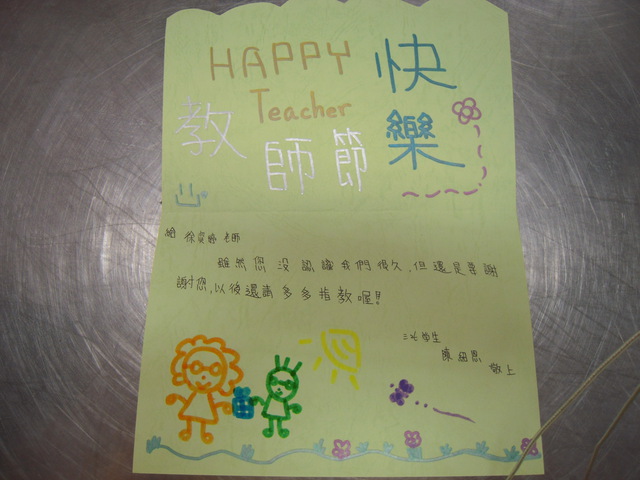 HAPPY 快
Teacher
教師節 樂
給 徐 老師
雖然您沒認識我們很久,但還是要謝
謝您,以後還請多多指教喔!!
學生
陳 恩
敬上